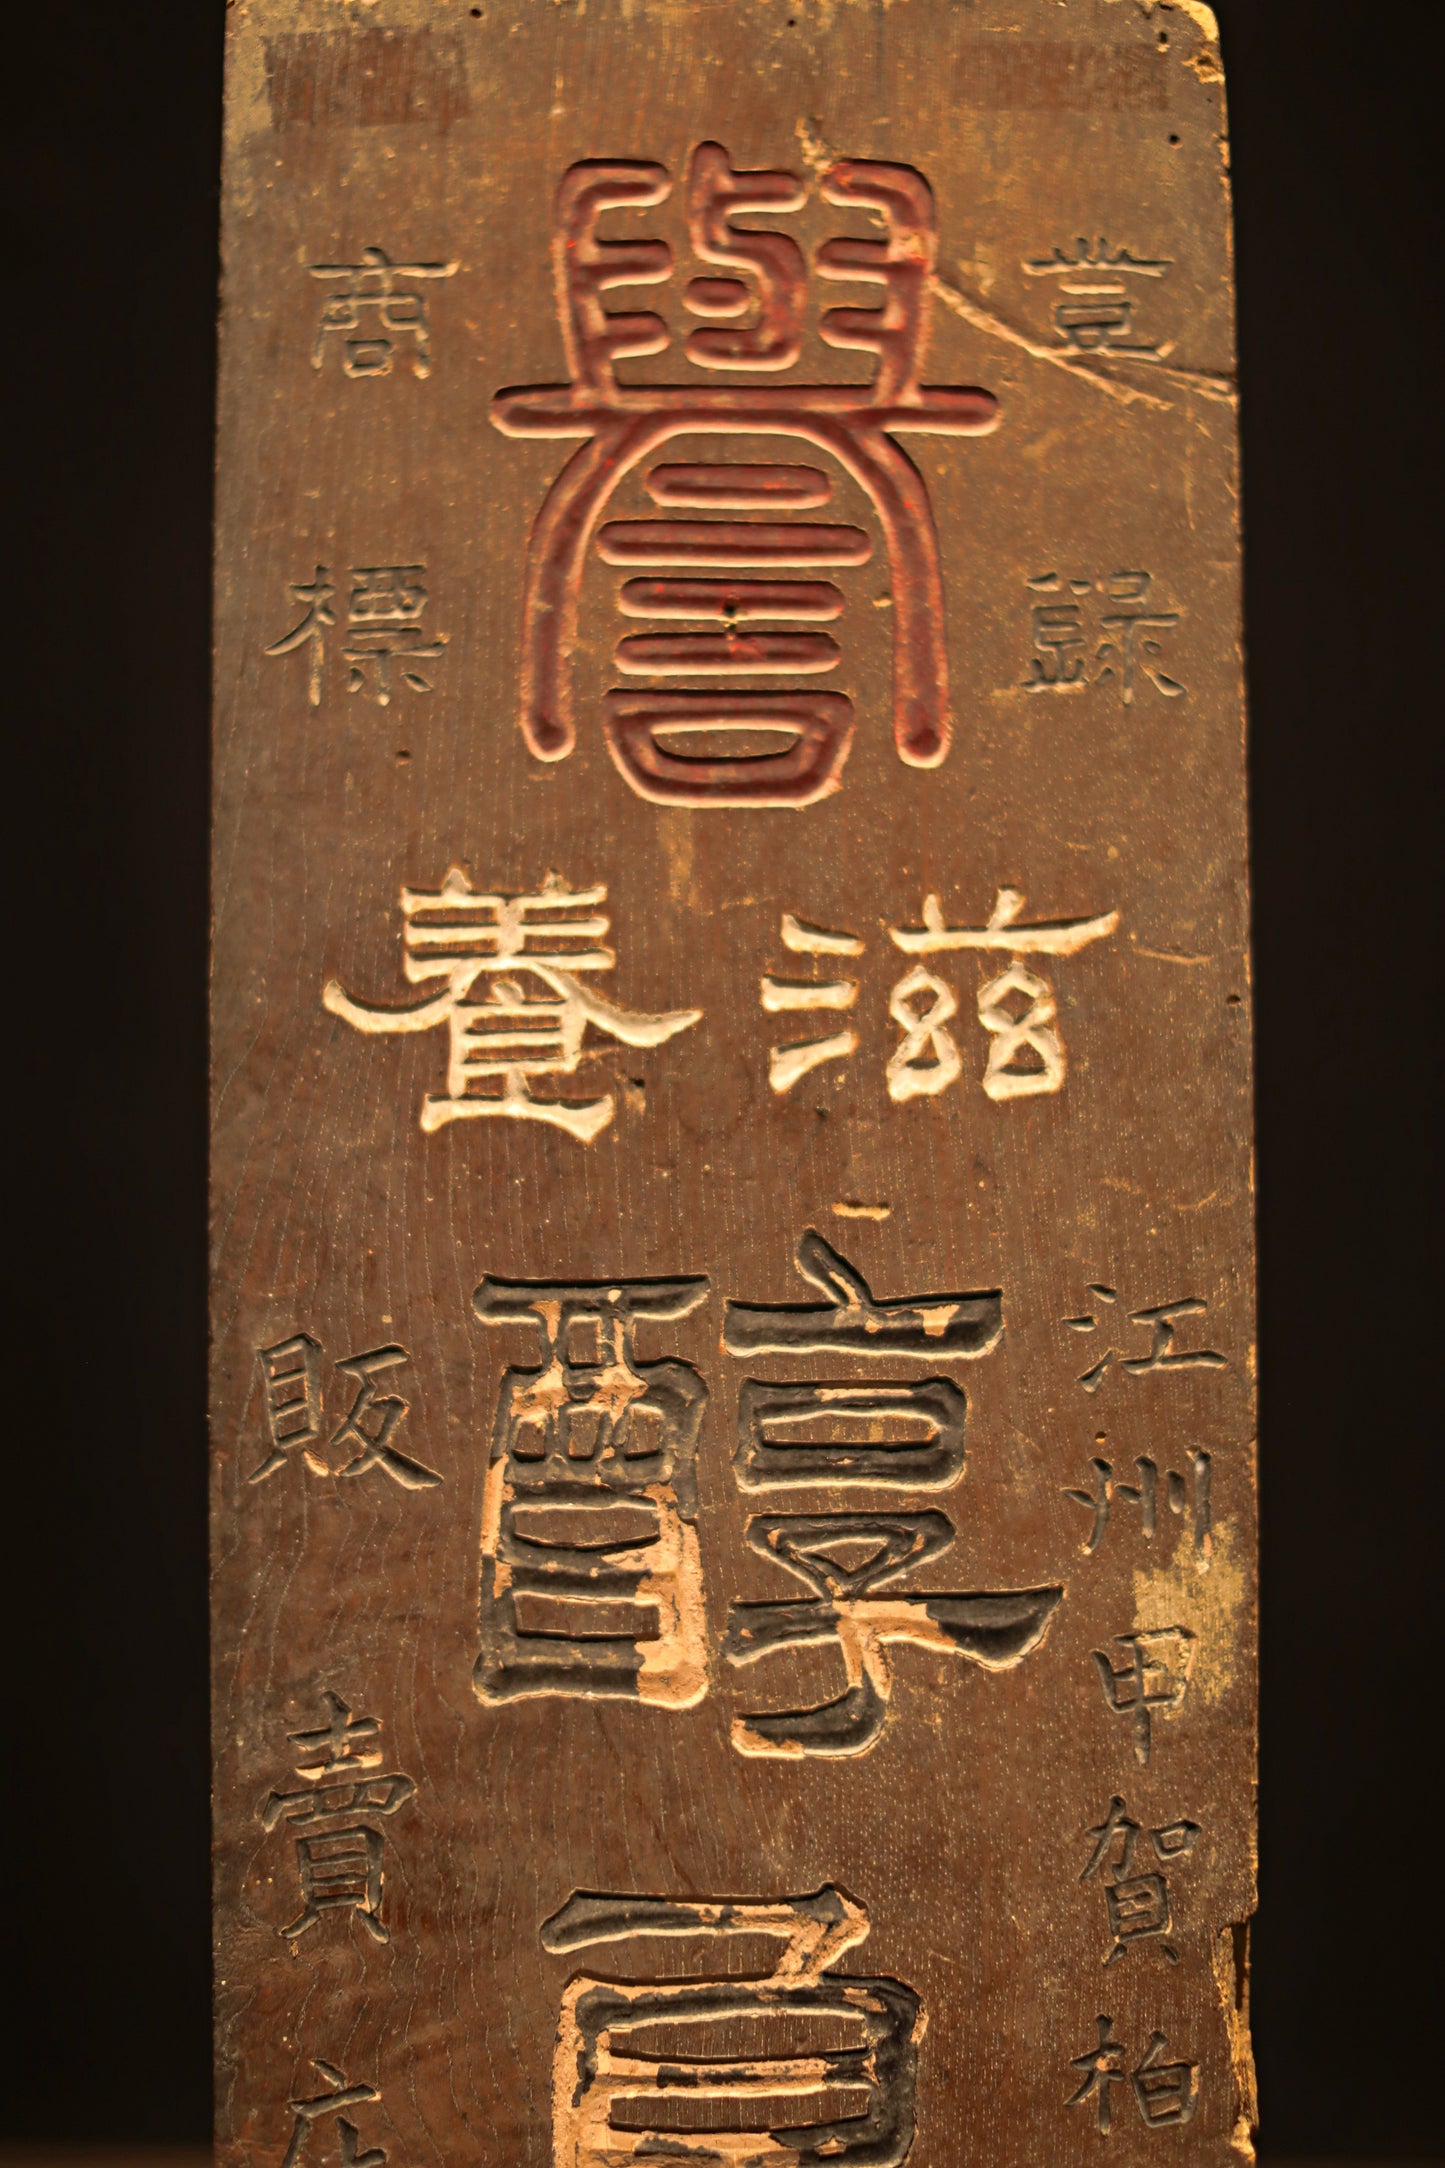 登録
譽
商標
滋養
江州甲賀柏
醇
販賣店